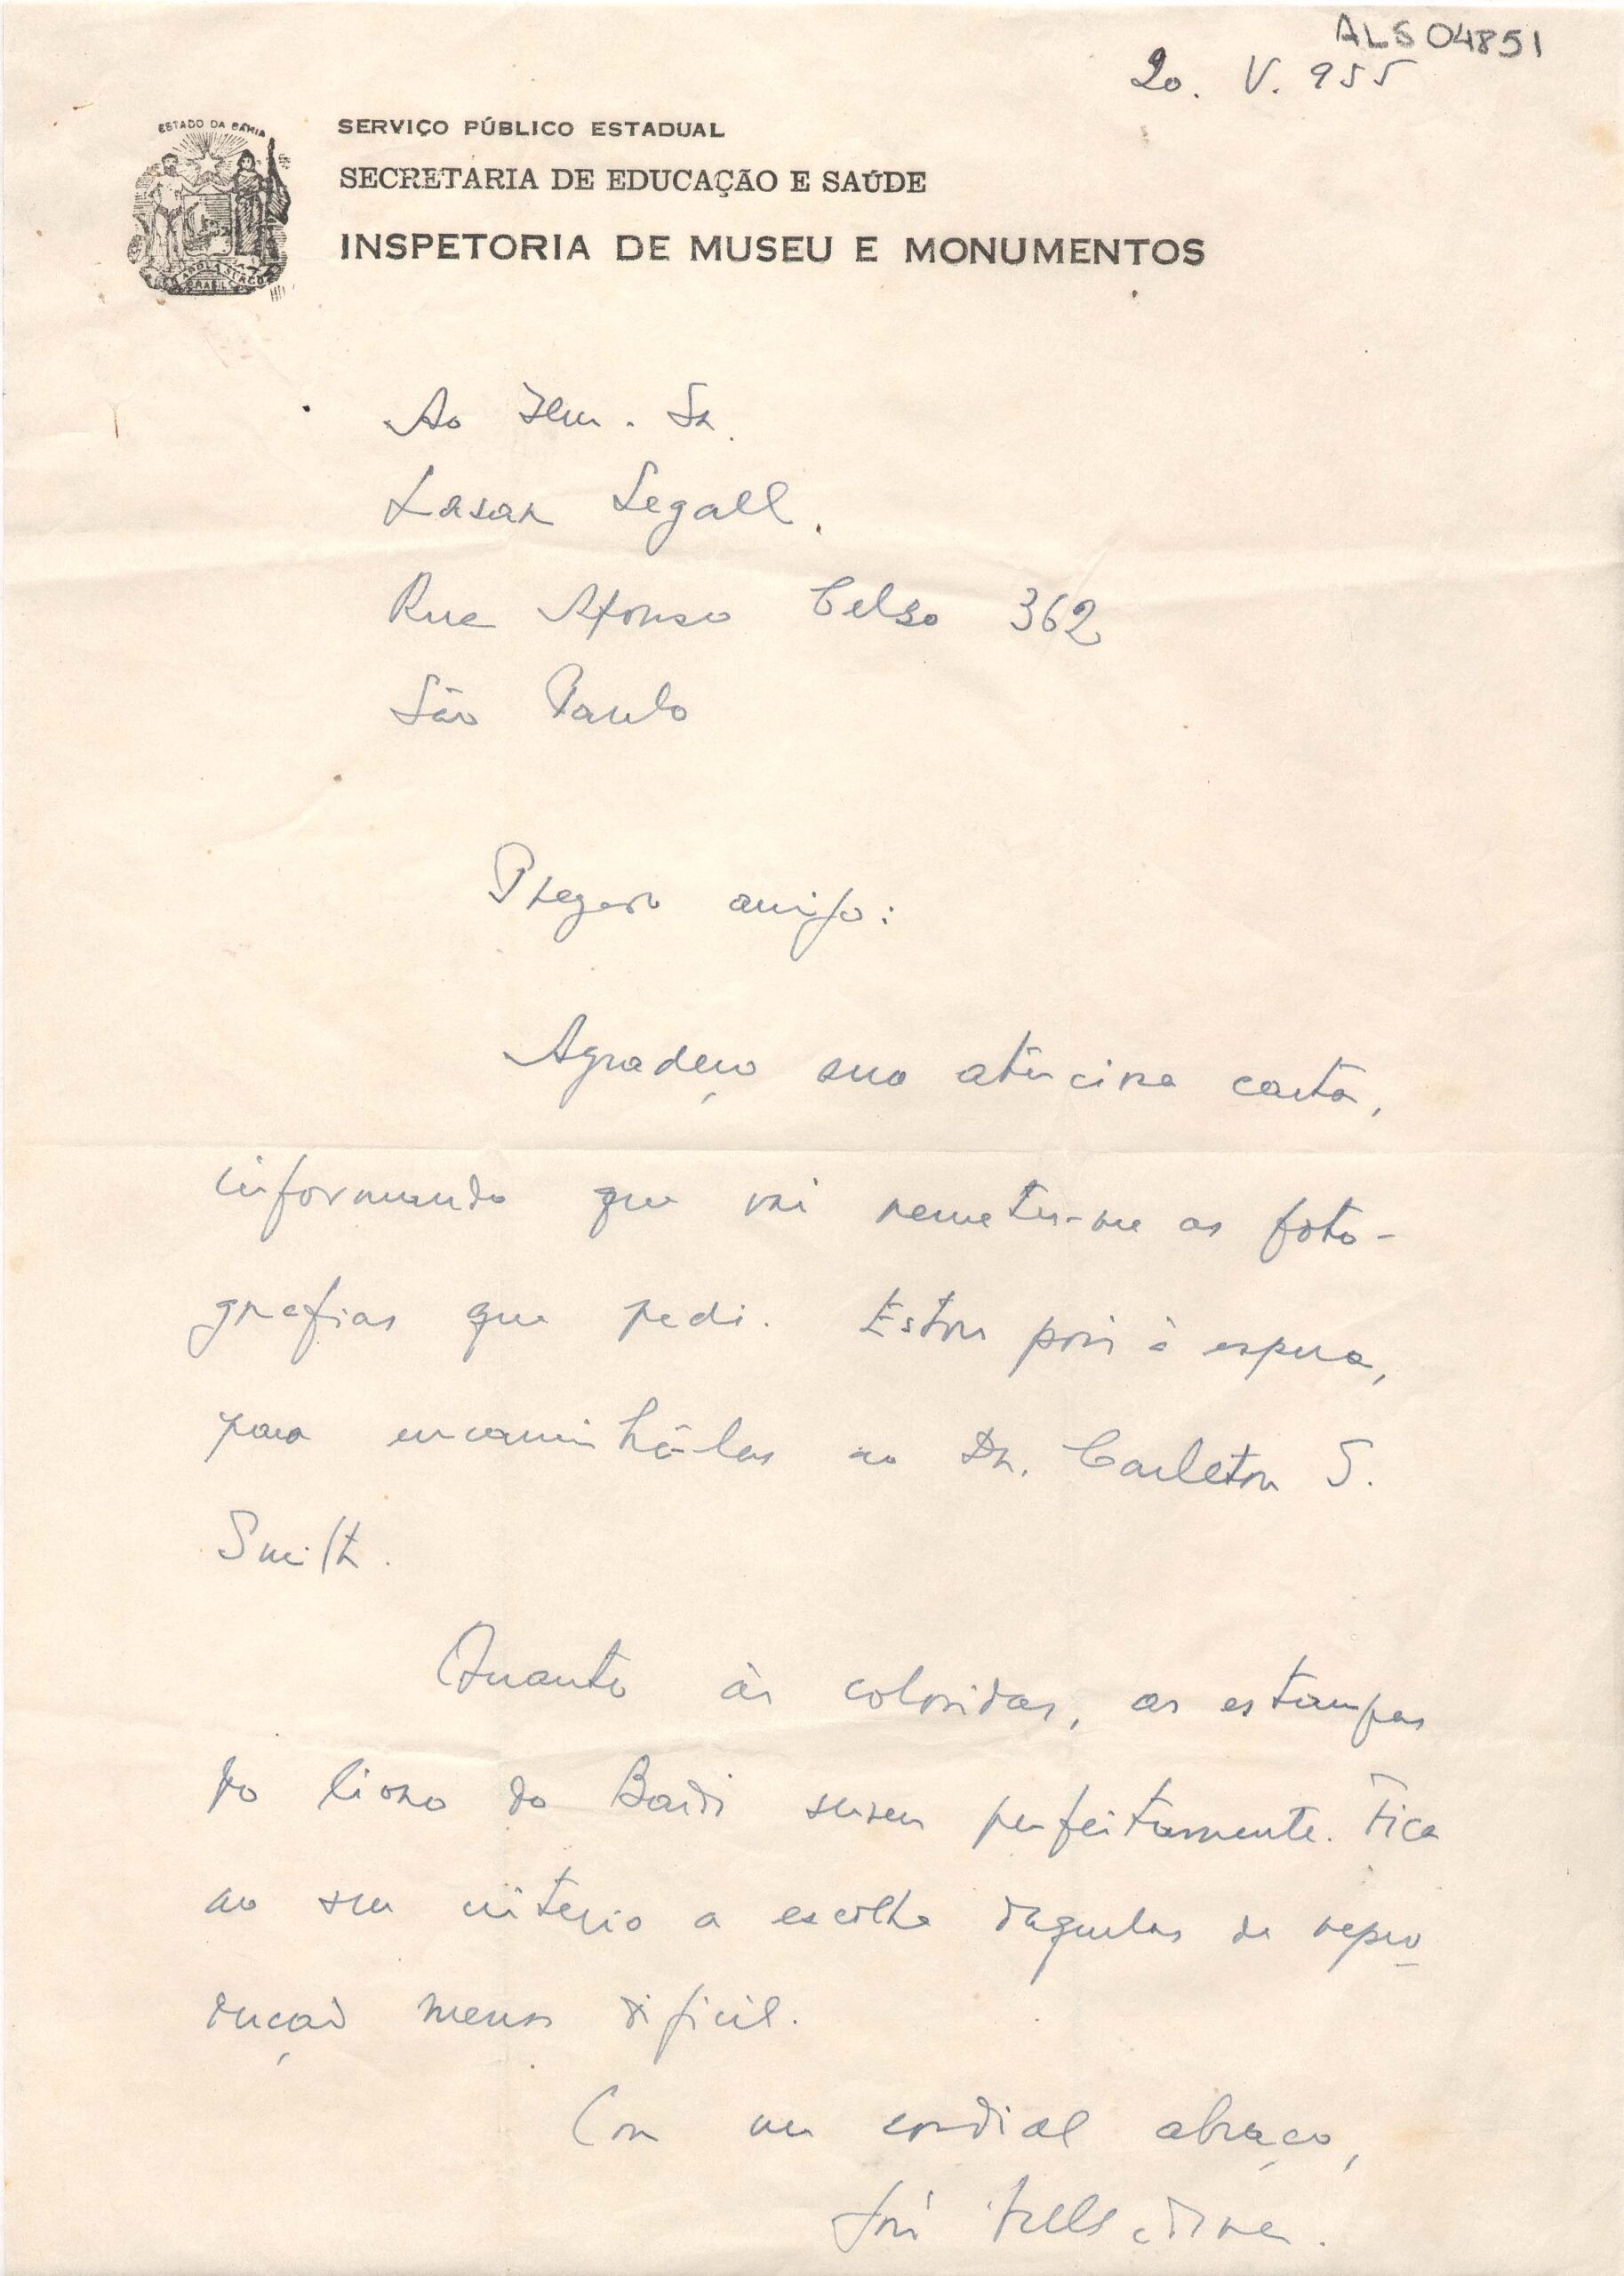 ALS 04851
20. V. 955
ESTADO DA BAHIA
SERVIÇO PÚBLICO ESTADUAL
SECRETARIA DE EDUCAÇÃO E SAÚDE
INSPETORIA DE MUSEU E MONUMENTOS
Ao Ilm. Sr.
Lasar Segall.
Rua Afonso Celso 362
São Paulo
Prezado amigo:
Agradeço sua atenciosa carta,
informando que vai remeter-me as foto-
grafias que pedi. Estou pois à espera,
para encaminhá-las ao Dr. Carleton S.
Smith.
Quanto às coloridas, as estampas
do livro do Bardi servem perfeitamente. Fica
ao seu critério a escolha daquelas de repro
dução menos dificil.
Com um cordial abraço,
José Valladares.